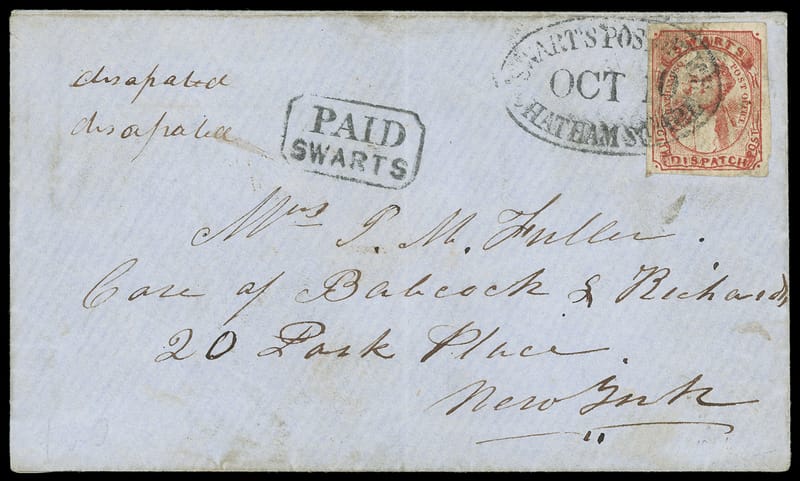 disapated
disapated
PAID
SWARTS
SWART'S POS
OCT
CHATHAM SQ
SWARTS
POST OFFICE
DISPATCH
POST
Mrs P. M. Fuller.
Care of Babcock & Richards
20 Park Place.
New York